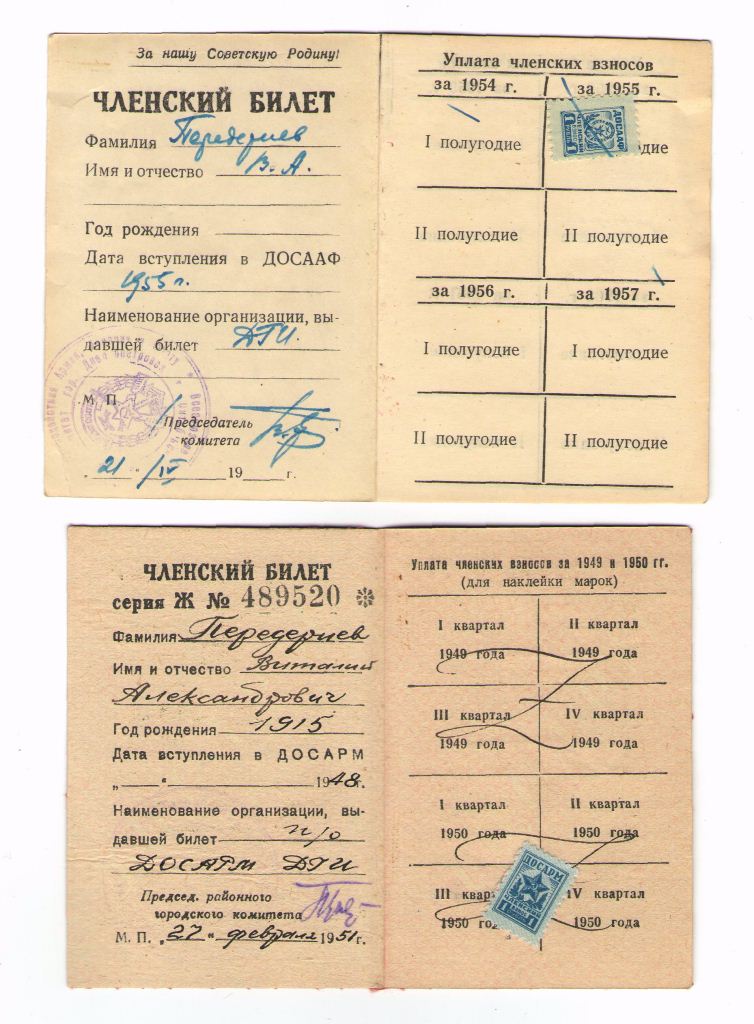 За нашу Советскую Родину!
ЧЛЕНСКИЙ БИЛЕТ
Фамилия Передериев
Имя и отчество В. А.
Год рождения
Дата вступления в ДОСААФ
1955 г.
Наименование организации, вы-
давшей билет ДГИ.
М. П.
Председатель
комитета
„21“ /IV 19 г.
Уплата членских взносов
за 1954 г. за 1955 г.
ДОСААФ
I полугодие дие
II полугодие II полугодие
за 1956 г. за 1957 г.
I полугодие I полугодие
II полугодие II полугодие
ЧЛЕНСКИЙ БИЛЕТ
серия Ж № 489520
Фамилия Передериев
Имя и отчество Виталий
Александрович
Год рождения 1915
Дата вступления в ДОСАРМ
„ “ 1948 г.
Наименование организации, вы-
давшей билет п/о
ДОСАРМ ДГИ
Председ. районного
городского комитета
М. П. „27“ февраля 1951 г.
Уплата членских взносов за 1949 и 1950 гг.
(для наклейки марок)
I квартал II квартал
1949 года 1949 года
III квартал IV квартал
1949 года 1949 года
I квартал II квартал
1950 года 1950 года
ДОСАРМ
III кварта IV квартал
1
1950 года 1950 года